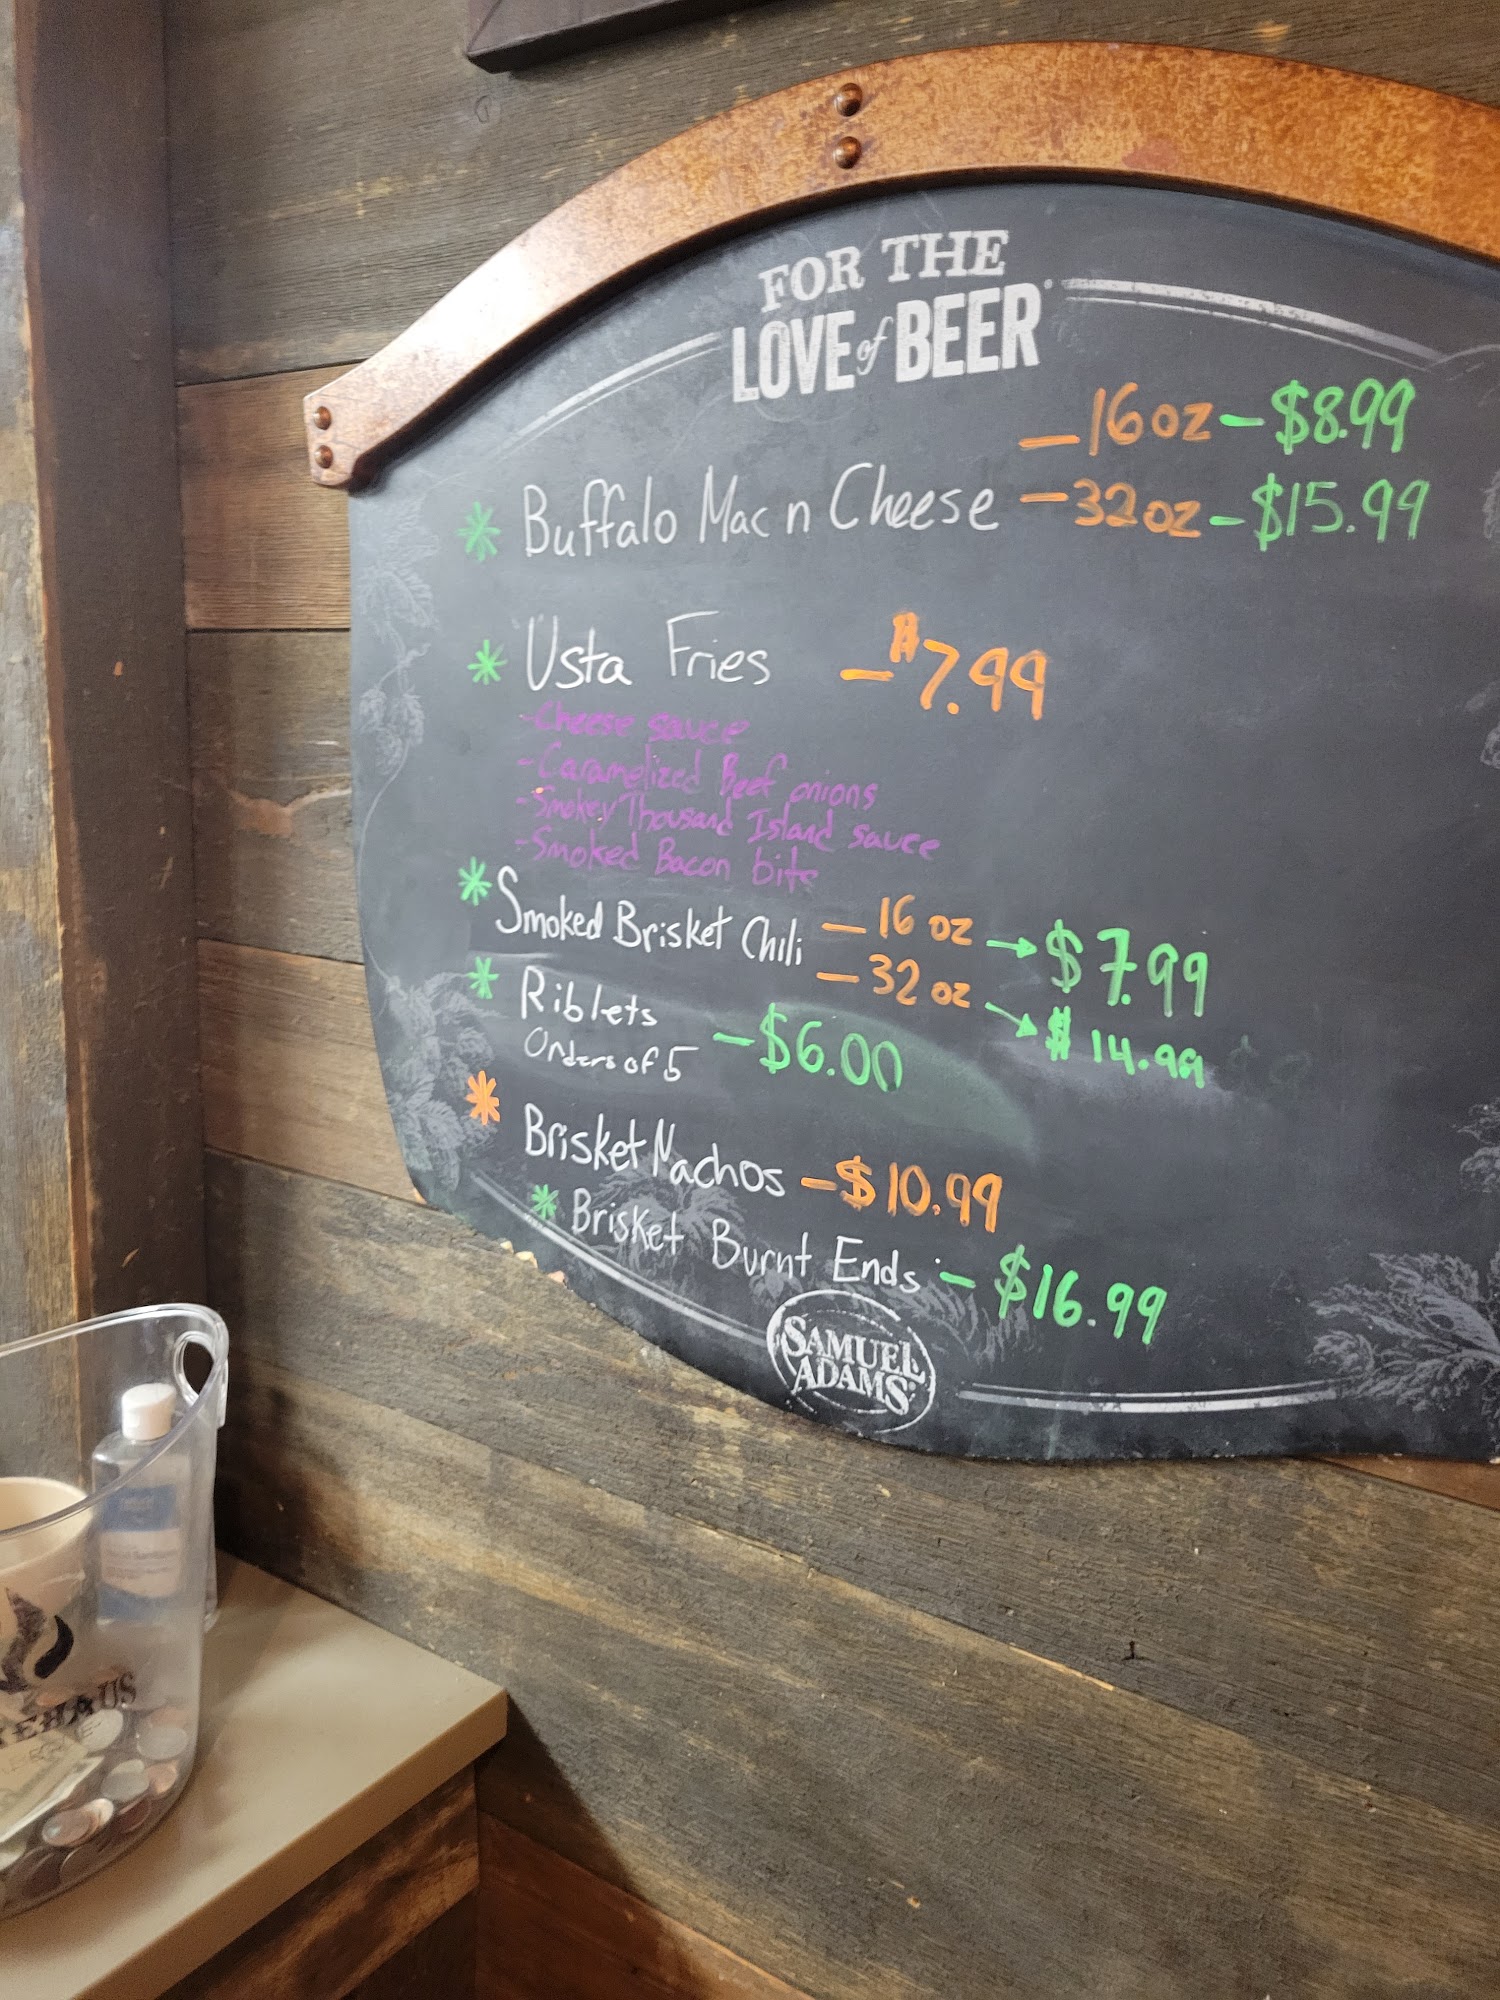 FOR THE
LOVE of BEER
- 16 oz - $8.99
* Buffalo Mac n Cheese - 32 oz - $15.99
* Usta Fries - $7.99
- Cheese sauce
- Caramelized Beef onions
- Smokey Thousand Island sauce
- Smoked Bacon bits
* Smoked Brisket Chili - 16 oz → $7.99
- 32 oz → $14.99
* Riblets - $6.00
Orders of 5
* Brisket Nachos - $10.99
* Brisket Burnt Ends - $16.99
SAMUEL
ADAMS